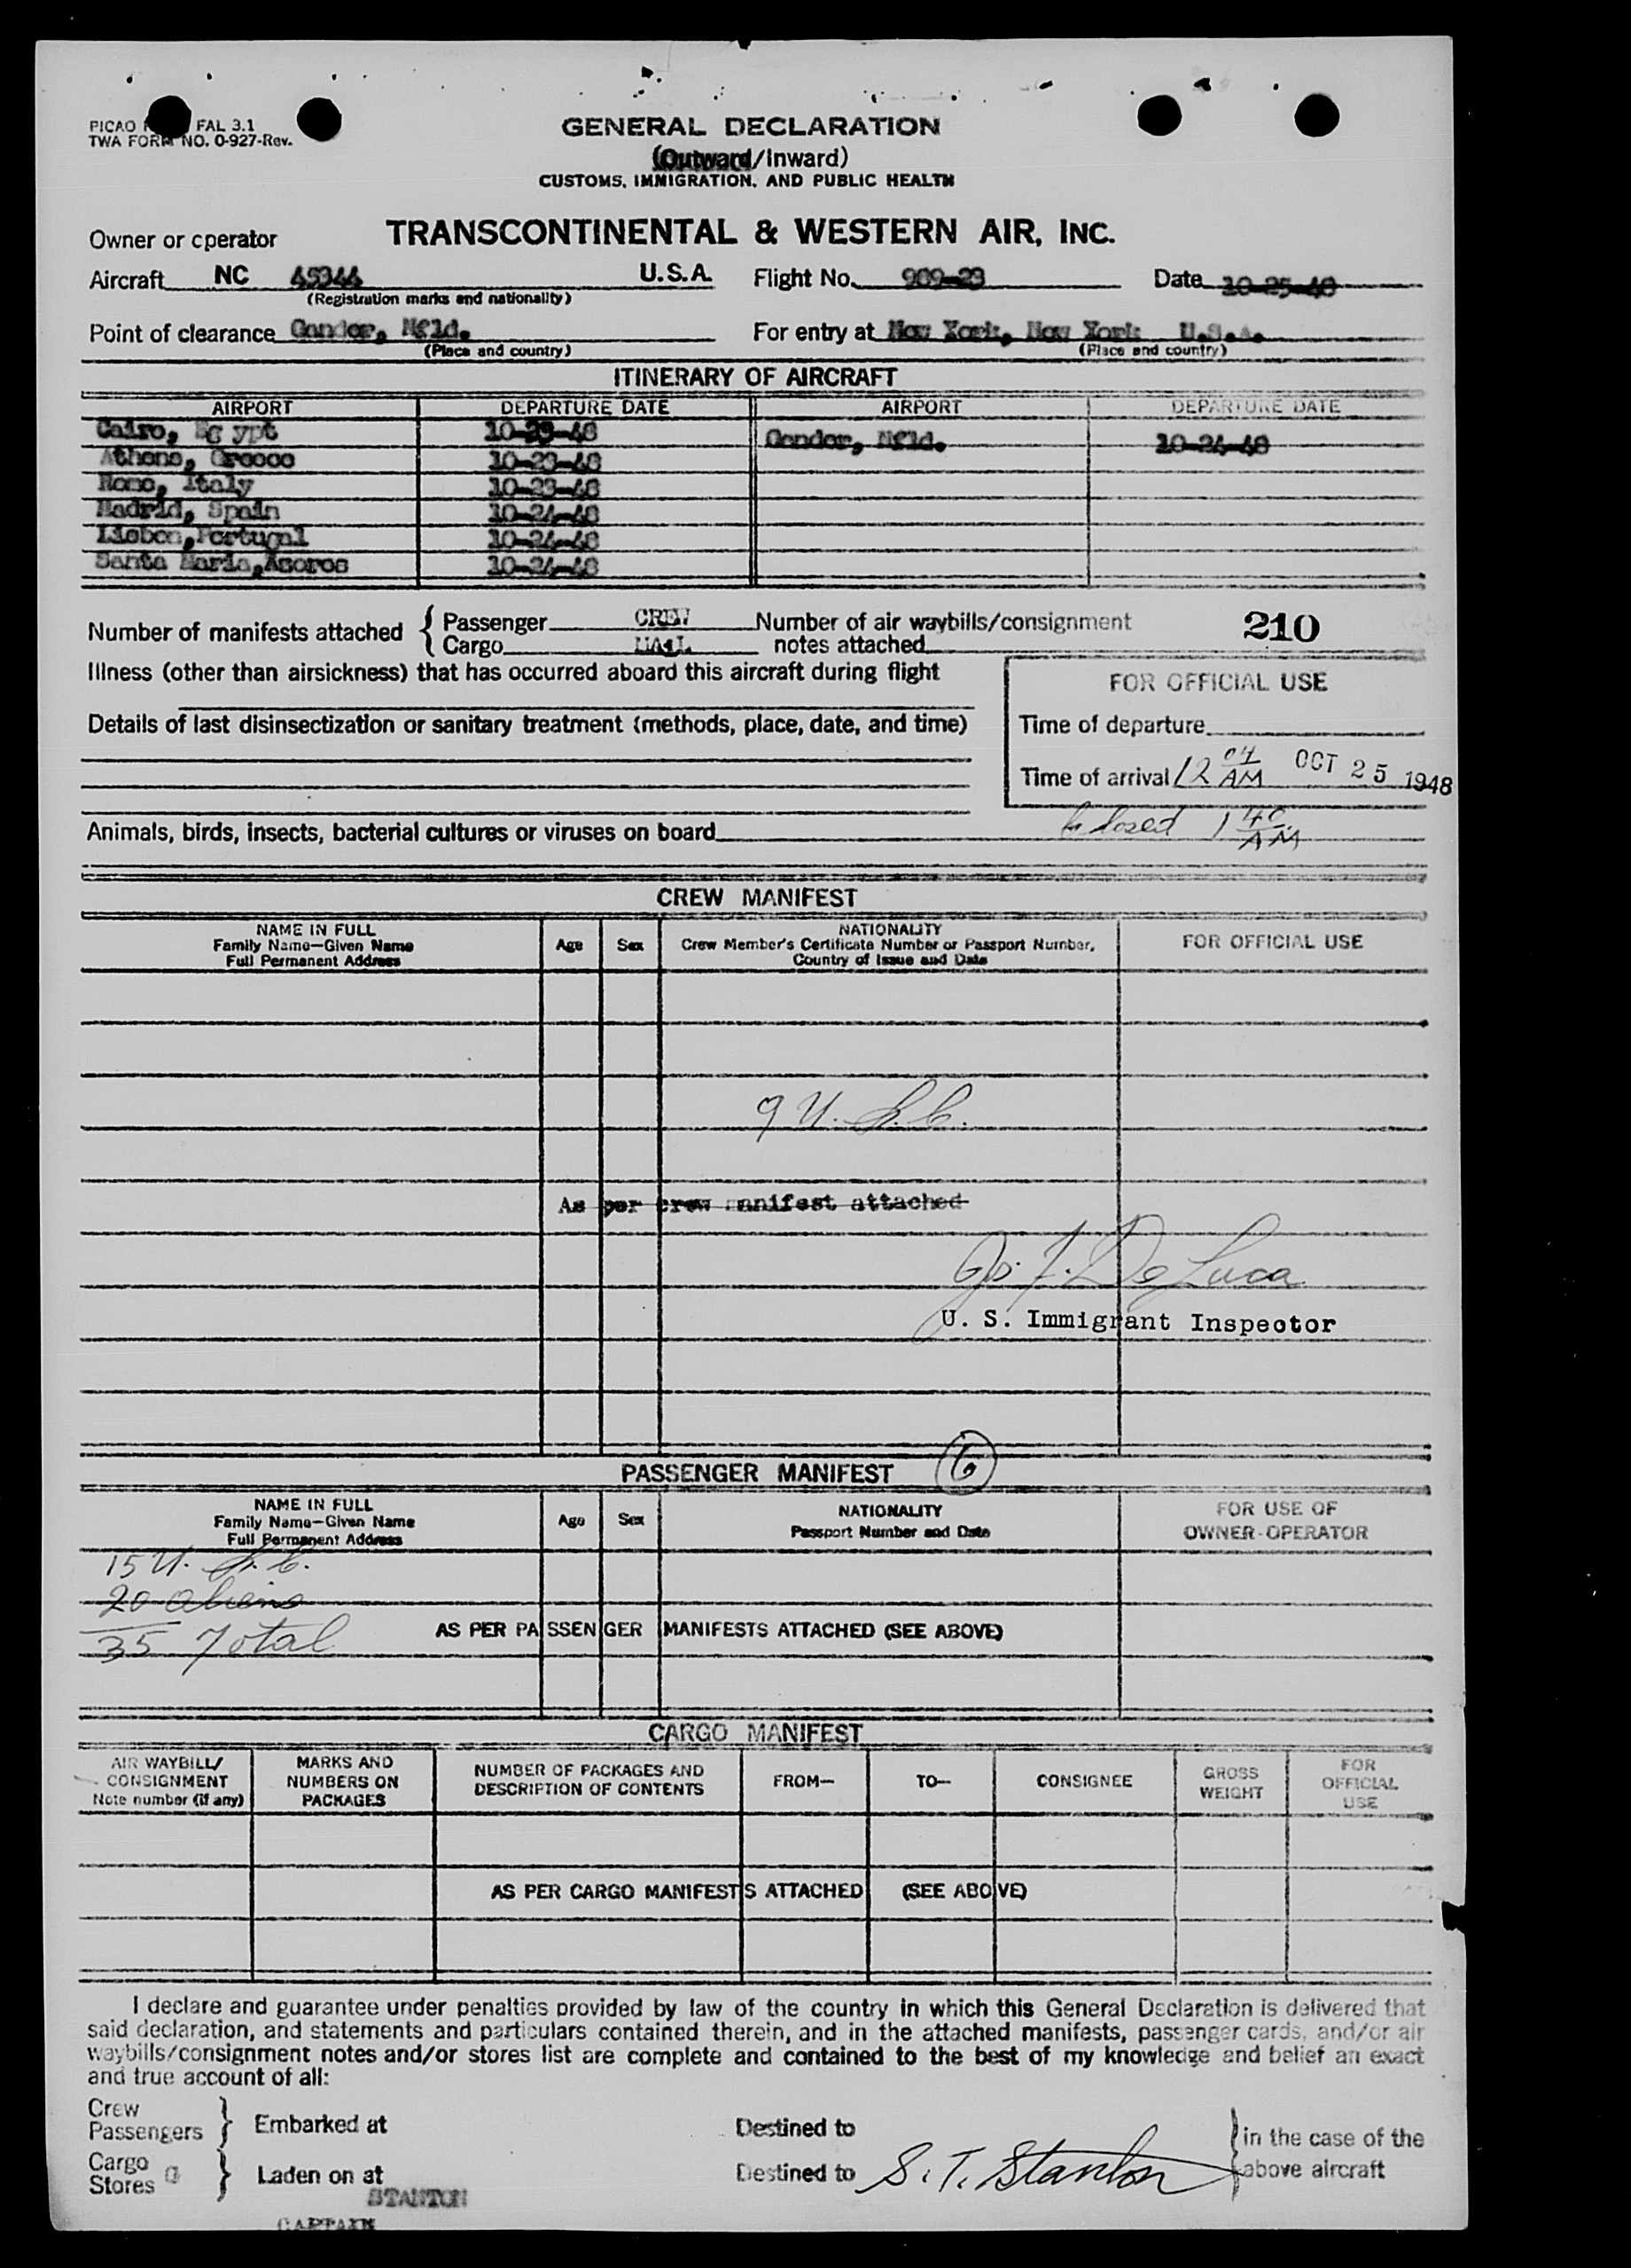 PICAO FAL 3.1
TWA FORM NO. O-927-Rev.
GENERAL DECLARATION
(Outward/Inward)
CUSTOMS, IMMIGRATION, AND PUBLIC HEALTH
Owner or operator TRANSCONTINENTAL & WESTERN AIR, INC.
Aircraft NC 45344 U.S.A. Flight No. 909-23 Date 10-25-48
(Registration marks and nationality)
Point of clearance Gander, Nfld. For entry at New York, New York U.S.A.
(Place and country) (Place and country)
ITINERARY OF AIRCRAFT
AIRPORT DEPARTURE DATE AIRPORT DEPARTURE DATE
Cairo, Eg ypt 10-23-48 Gander, Nfld. 10-24-48
Athens, Greece 10-23-48
Rome, Italy 10-23-48
Madrid, Spain 10-24-48
Lisbon,Portugal 10-24-48
Santa Maria,Azores 10-24-48
Number of manifests attached { Passenger CREW Number of air waybills/consignment 210
Cargo MAIL notes attached
Illness (other than airsickness) that has occurred aboard this aircraft during flight
FOR OFFICIAL USE
Details of last disinsectization or sanitary treatment (methods, place, date, and time)
Time of departure
Time of arrival 12 04 AM OCT 25 1948
Animals, birds, insects, bacterial cultures or viruses on board
closed 1 40 AM
CREW MANIFEST
NAME IN FULL
Family Name—Given Name
Full Permanent Address
Age Sex
NATIONALITY
Crew Member's Certificate Number or Passport Number,
Country of Issue and Date
FOR OFFICIAL USE
9 U.S.C.
As per crew manifest attached
Jos. F. De Luca
U. S. Immigrant Inspector
PASSENGER MANIFEST 6
NAME IN FULL
Family Name—Given Name
Full Permanent Address
Age Sex
NATIONALITY
Passport Number and Date
FOR USE OF
OWNER-OPERATOR
15 U.S.C.
20 Aliens
35 Total
AS PER PASSENGER MANIFESTS ATTACHED (SEE ABOVE)
CARGO MANIFEST
AIR WAYBILL/
CONSIGNMENT
Note number (if any)
MARKS AND
NUMBERS ON
PACKAGES
NUMBER OF PACKAGES AND
DESCRIPTION OF CONTENTS
FROM—
TO—
CONSIGNEE
GROSS
WEIGHT
FOR
OFFICIAL
USE
AS PER CARGO MANIFESTS ATTACHED (SEE ABOVE)
I declare and guarantee under penalties provided by law of the country in which this General Declaration is delivered that
said declaration, and statements and particulars contained therein, and in the attached manifests, passenger cards, and/or air
waybills/consignment notes and/or stores list are complete and contained to the best of my knowledge and belief an exact
and true account of all:
Crew
Passengers } Embarked at Destined to } in the case of the
Cargo
Stores } Laden on at Destined to S. T. Stanton above aircraft
STANTON
CAPTAIN